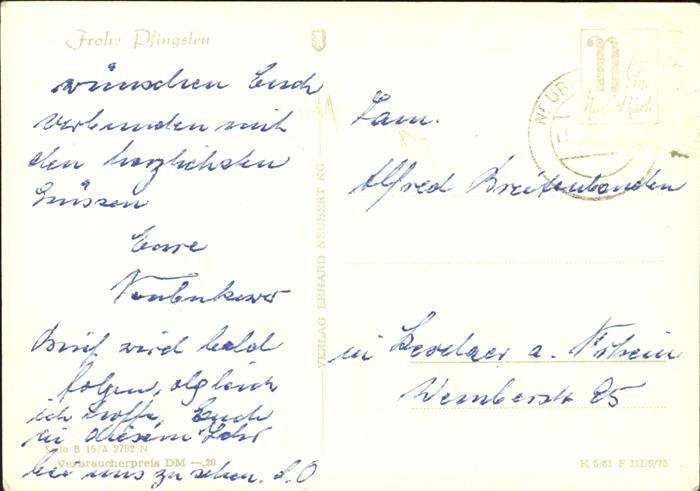 Frohe Pfingsten
wünschen Euch
verbunden mit
den herzlichsten
Grüssen
Eure
Brief wird bald
folgen, obgleich
ich hoffe, Euch
in diesem Jahr
bei uns zu sehen. d. O
Serie B 15/A 2782 N
Verbraucherpreis DM —.20
VERLAG ERHARD NEUBERT KG
NEUB
Fam.
Alfred Breitenbanden
in a. Rhein
Wemberstr 25
K 5/61 F III/6/73